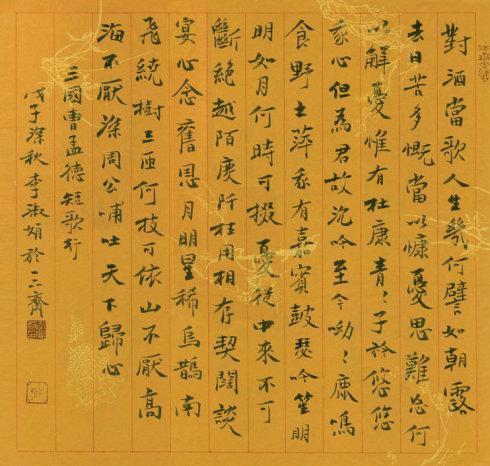 對酒當歌人生幾何譬如朝露
去日苦多慨當以慷憂思難忘何
以解憂惟有杜康青々子衿悠悠
我心但為君故沉吟至今呦々鹿鳴
食野之萍我有嘉賓鼓瑟吹笙明
明如月何時可掇憂從中來不可
斷絕越陌度阡枉用相存契闊談
宴心念舊恩月明星稀烏鵲南
飛繞樹三匝何枝可依山不厭高
海不厭深周公哺吐天下歸心
三國曹孟德短歌行
戊子深秋李淑娟於齋